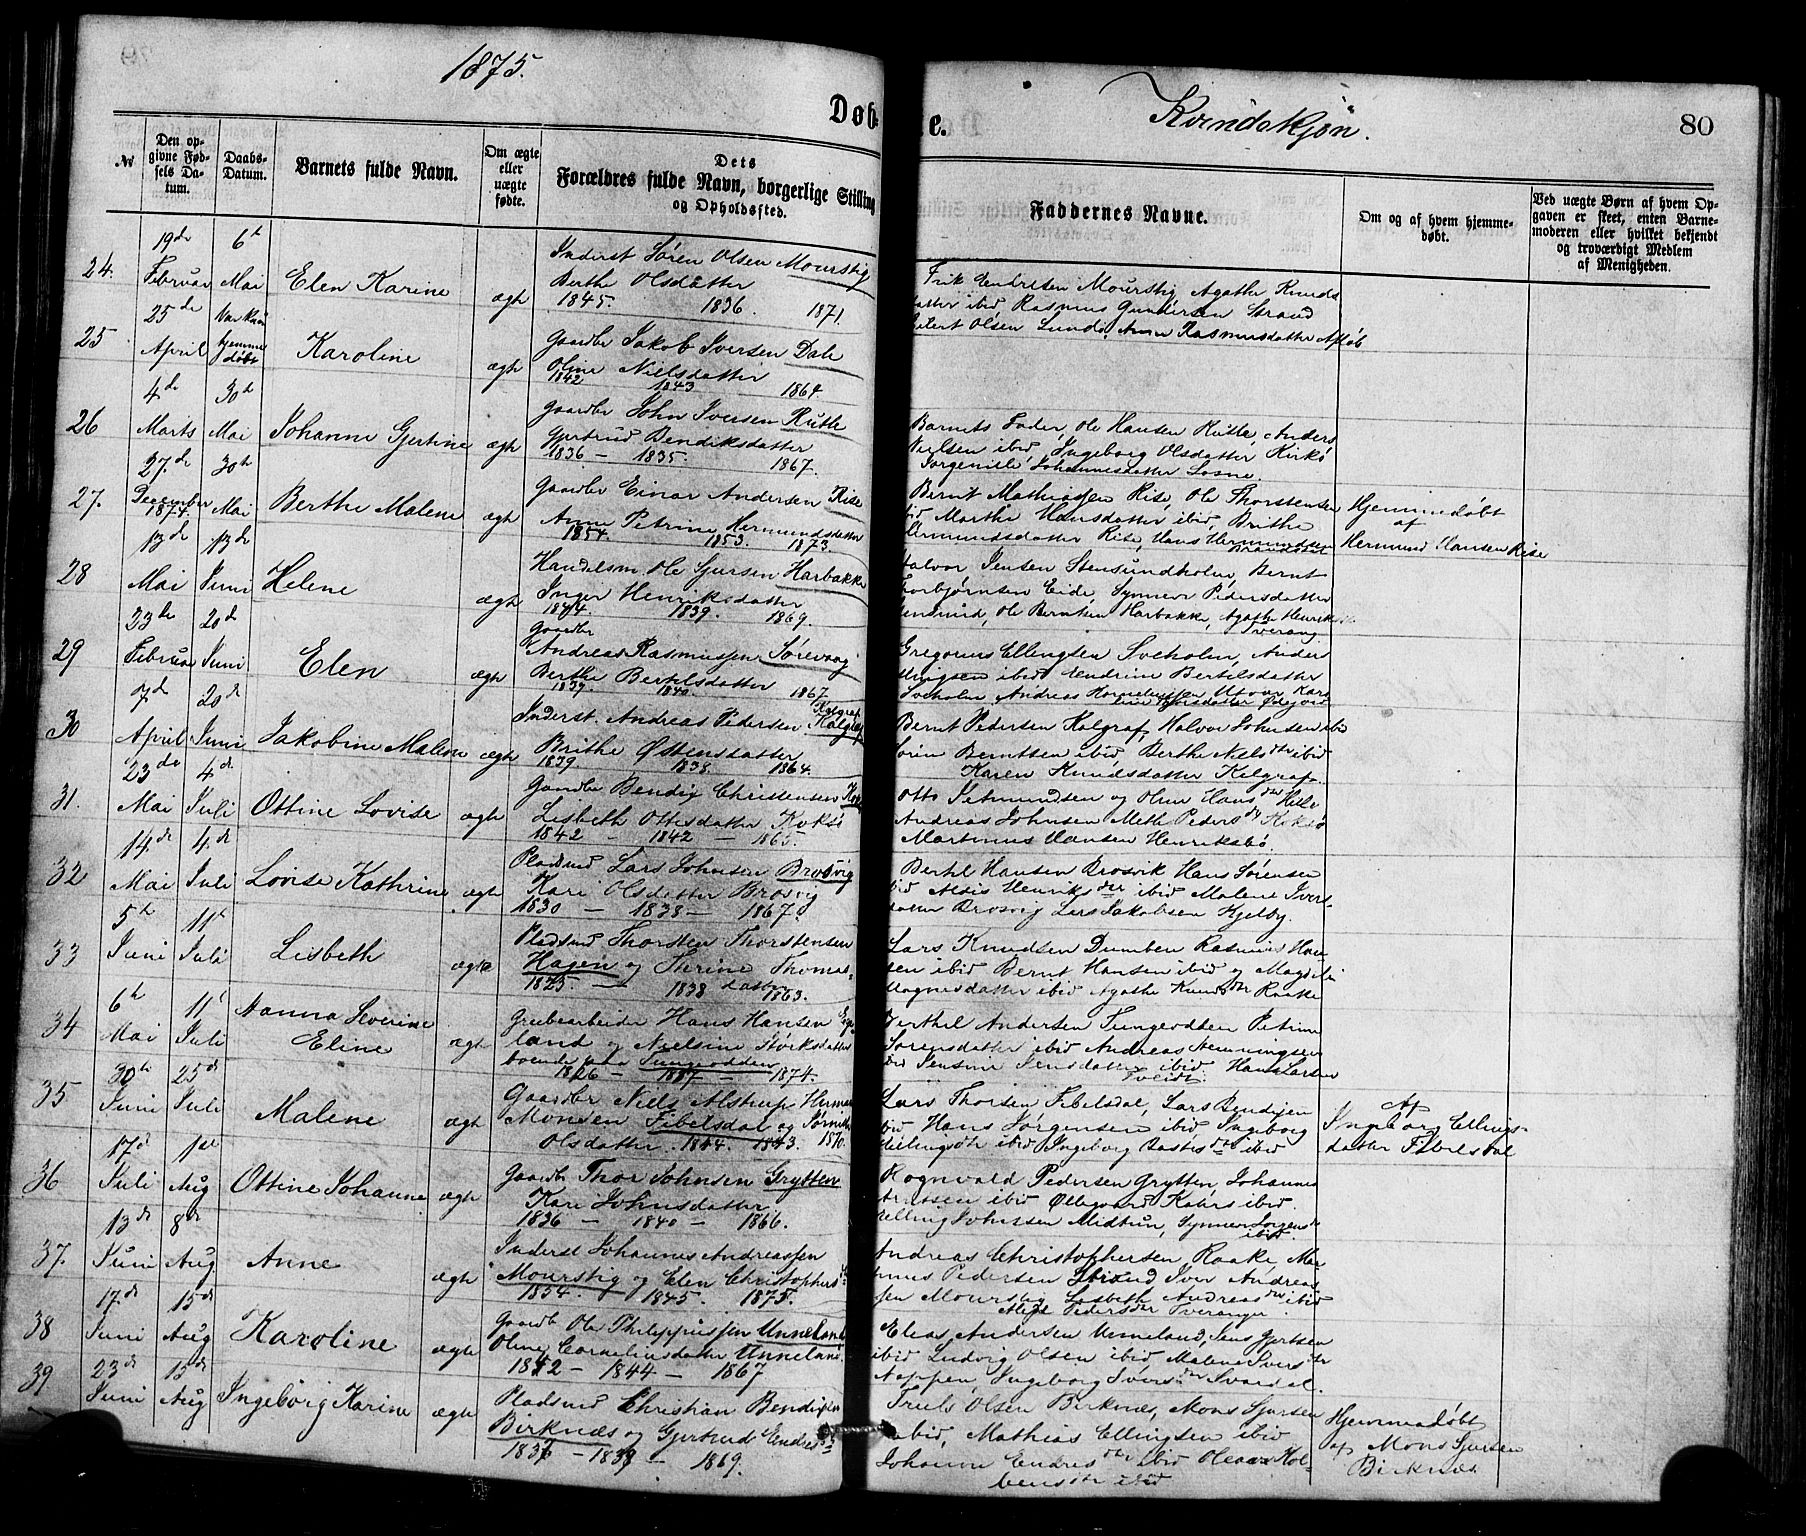 1875.
Døbte.
Kvindekjøn.
80
№
Den opgivne Fødsels Datum.
Daabs-Datum.
Barnets fulde Navn.
Om ægte eller uægte fødte.
Dets Forældres fulde Navn, borgerlige Stilling og Opholdssted.
Faddernes Navne.
Om og af hvem hjemmedøbt.
Ved uægte Børn af hvem Opgaven er skeet, enten Barnemoderen eller hvilket bekjendt og troværdigt Medlem af Menigheden.
24.
19de Februar
6te Mai
Elen Karine
ægte
Inderst Søren Olsen Mourstig
Berthe Olsdatter
1845. 1836. 1871.
Erik Endresen Mourstig Agathe Knuds
datter ibid, Rasmus Gundersen Strand
Olsen Sunde, Anne Rasmusdatter
25
25de April
Var kun hjemmedøbt
Karoline
ægte
Gaardbr Jakob Iversen Dale
Oline Nielsdatter
1842 1843 1864
26
4de Marts
30te Mai
Johanne Gjertine
ægte
Gaardbr John Iversen Rutle
Gjertrud Bendiksdatter
1836 – 1835. 1867.
Barnets Fader, Ole Hansen Rutle, Anders
Nielsen ibid, Ingeborg Olsdatter Kirkø
Johannesdatter Losne.
27.
27de December 1874.
30te Mai
Berthe Malene
ægte
Gaardbr Einar Andersen Rise
Anne Petrine Hermundsdatter
1854. 1853. 1873.
Bernt Mathiassen Rise, Ole Thorstensen
ibid Marthe Hansdatter ibid, Brithe
Hermundsdatter Rise, Hans Hermundsen
Hjemmedøbt
af
Hermund Hansen Rise
28
13de Mai
13de Juni
Helene
ægte
Handelsm Ole Sjursen Harbakke
Inger Henriksdatter
1844. 1839. 1869.
Halvor Jensen Stensundholm, Bernt
Torbjørnsen Eide, Synneve Pedersdatter
Ole Berntsen Harbakke, Agathe Henriks
Tverang.
29
23de Februar
20de Juni
Elen
ægte
Gaardbr
Andreas Rasmussen Sørevaag
Berthe Bertelsdatter
1839. 1840. 1867
Gregorius Ellingsen Sveholm, Anders
Ellingsen ibid Endrine Bertelsdatter
Sveholm Andreas Kornelussen Utvær
30
7de April
20de Juni
Jakobine Malene
ægte
Inderst. Andreas Pedersen Kalgraf
Brithe Østensdatter
1839 1838. 1864.
Bernt Pedersen Kolgraf, Halvor Johnsen ibid
Berntsen ibid, Berthe Nielsdtr ibid
Karen Knudsdatter Kolgraf.
31.
23de Mai
4de Juli
Ottine Lovise
ægte
Gaardbr Bendix Christensen
Lisbeth Ottesdatter Koksø
1842 – 1842 – 1865
Otto Setmundsen og Oline Hansdtr Hille
Andreas Johnsen Mette Pedersdtr Koksø
Martinus Hansen Henriksbø.
32
14de Mai
4de Juli
Lovise Kathrine
ægte
Pladsmd Lars Johnsen Brosvig
Kari Olsdatter Brosvig
1830 – 1838 – 1867.
Bertel Hansen Brosvik Hans Sørensen
ibid Henriksdtr ibid Malene Ivers-
datter Brosvig Lars Jakobsen Kjelby.
33
5te Juni
11te Juli
Lisbeth
ægte
Pladsmd Thorsten Thorstensen
Hagen og Therine Thomas-
datter
1825 – 1838 1863.
Lars Knudsen Dumben Rasmus Han-
sen ibid Bernt Hansen ibid og Magdeli
Mognesdatter ibid Agathe Knudsdtr Raake
34
6te Mai
11te Juli
Hanna Severine
Eline
ægte
Grubearbeider Hans Hansen
land og Nielsine Størksdatter
boende paa Tungeodden
1826 – 1837 – 1874.
Berthel Andersen Tungeodden Petrine
Sørensdatter ibid Andreas Henningsen
ibid Jensine Jensdatter ibid. Hans Larsen
Tveidt.
35
30te Juni
25de Juli
Malene
ægte
Gaardbr Niels Alstrup Herman
Monsen Fibelsdal og
Olsdatter. 1844 1843. 1870.
Lars Thorsen Fibelsdal, Lars Bendixen
ibid Hans Jørgensen ibid Ingeborg
Ellingsdtr ibid Ingeborg ibid
Af
Ingeborg Ellings-
datter Fibelsdal
36
17de Juli
1ste Aug
Ottine Johanne
ægte
Gaardbr Thor Johnsen Grytten
Kari Johnsdatter
1836 – 1840 – 1866.
Rognvald Pedersen Grytten, Johannes
ibid Øllegaard ibid.
Elling Johnsen Midtun, Synneve Jørgensdtr
ibid.
37.
13de Juni
8de Aug
Anne
ægte
Inderst Johannes Andreassen
Mourstig og Elen Christophersdtr
1854. 1845. 1875.
Andreas Christophersen Raake, Mag-
nus Pedersen Strand Iver Andreas
sen Mourstig Lisbeth Andreasdtr ibid
Pedersdtr Tveranger
38
17de Juni
15de Aug
Karoline
ægte
Gaardbr Ole Philippussen Unneland
Oline Corneliusdatter Unneland.
1842 – 1844 – 1867
Elias Andersen Unneland, Jens Gjertsen
ibid Ludvig Olsen ibid Malene Iversdtr
Noppen, Ingeborg Iversdtr Svardal.
39
23de Juni
15de Aug
Ingeborg Karine
ægte
Pladsmd Christian Bendixen
Birknæs og Gjertrud Endresdtr
1837 – 1839 – 1869.
Truls Olsen Birknæs, Mons Sjursen
ibid, Mathias Ellingsen ibid
Johanne Endresdtr ibid Oleane Kol-
bensdtr ibid
Hjemmedøbt
af Mons Sjursen
Birknæs